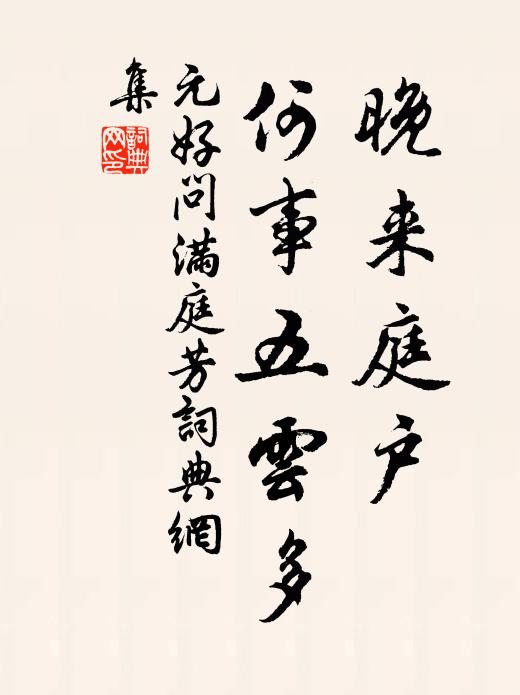 晚来庭户
何事五雲多
元好問满庭芳詞典網
集
詞典网印